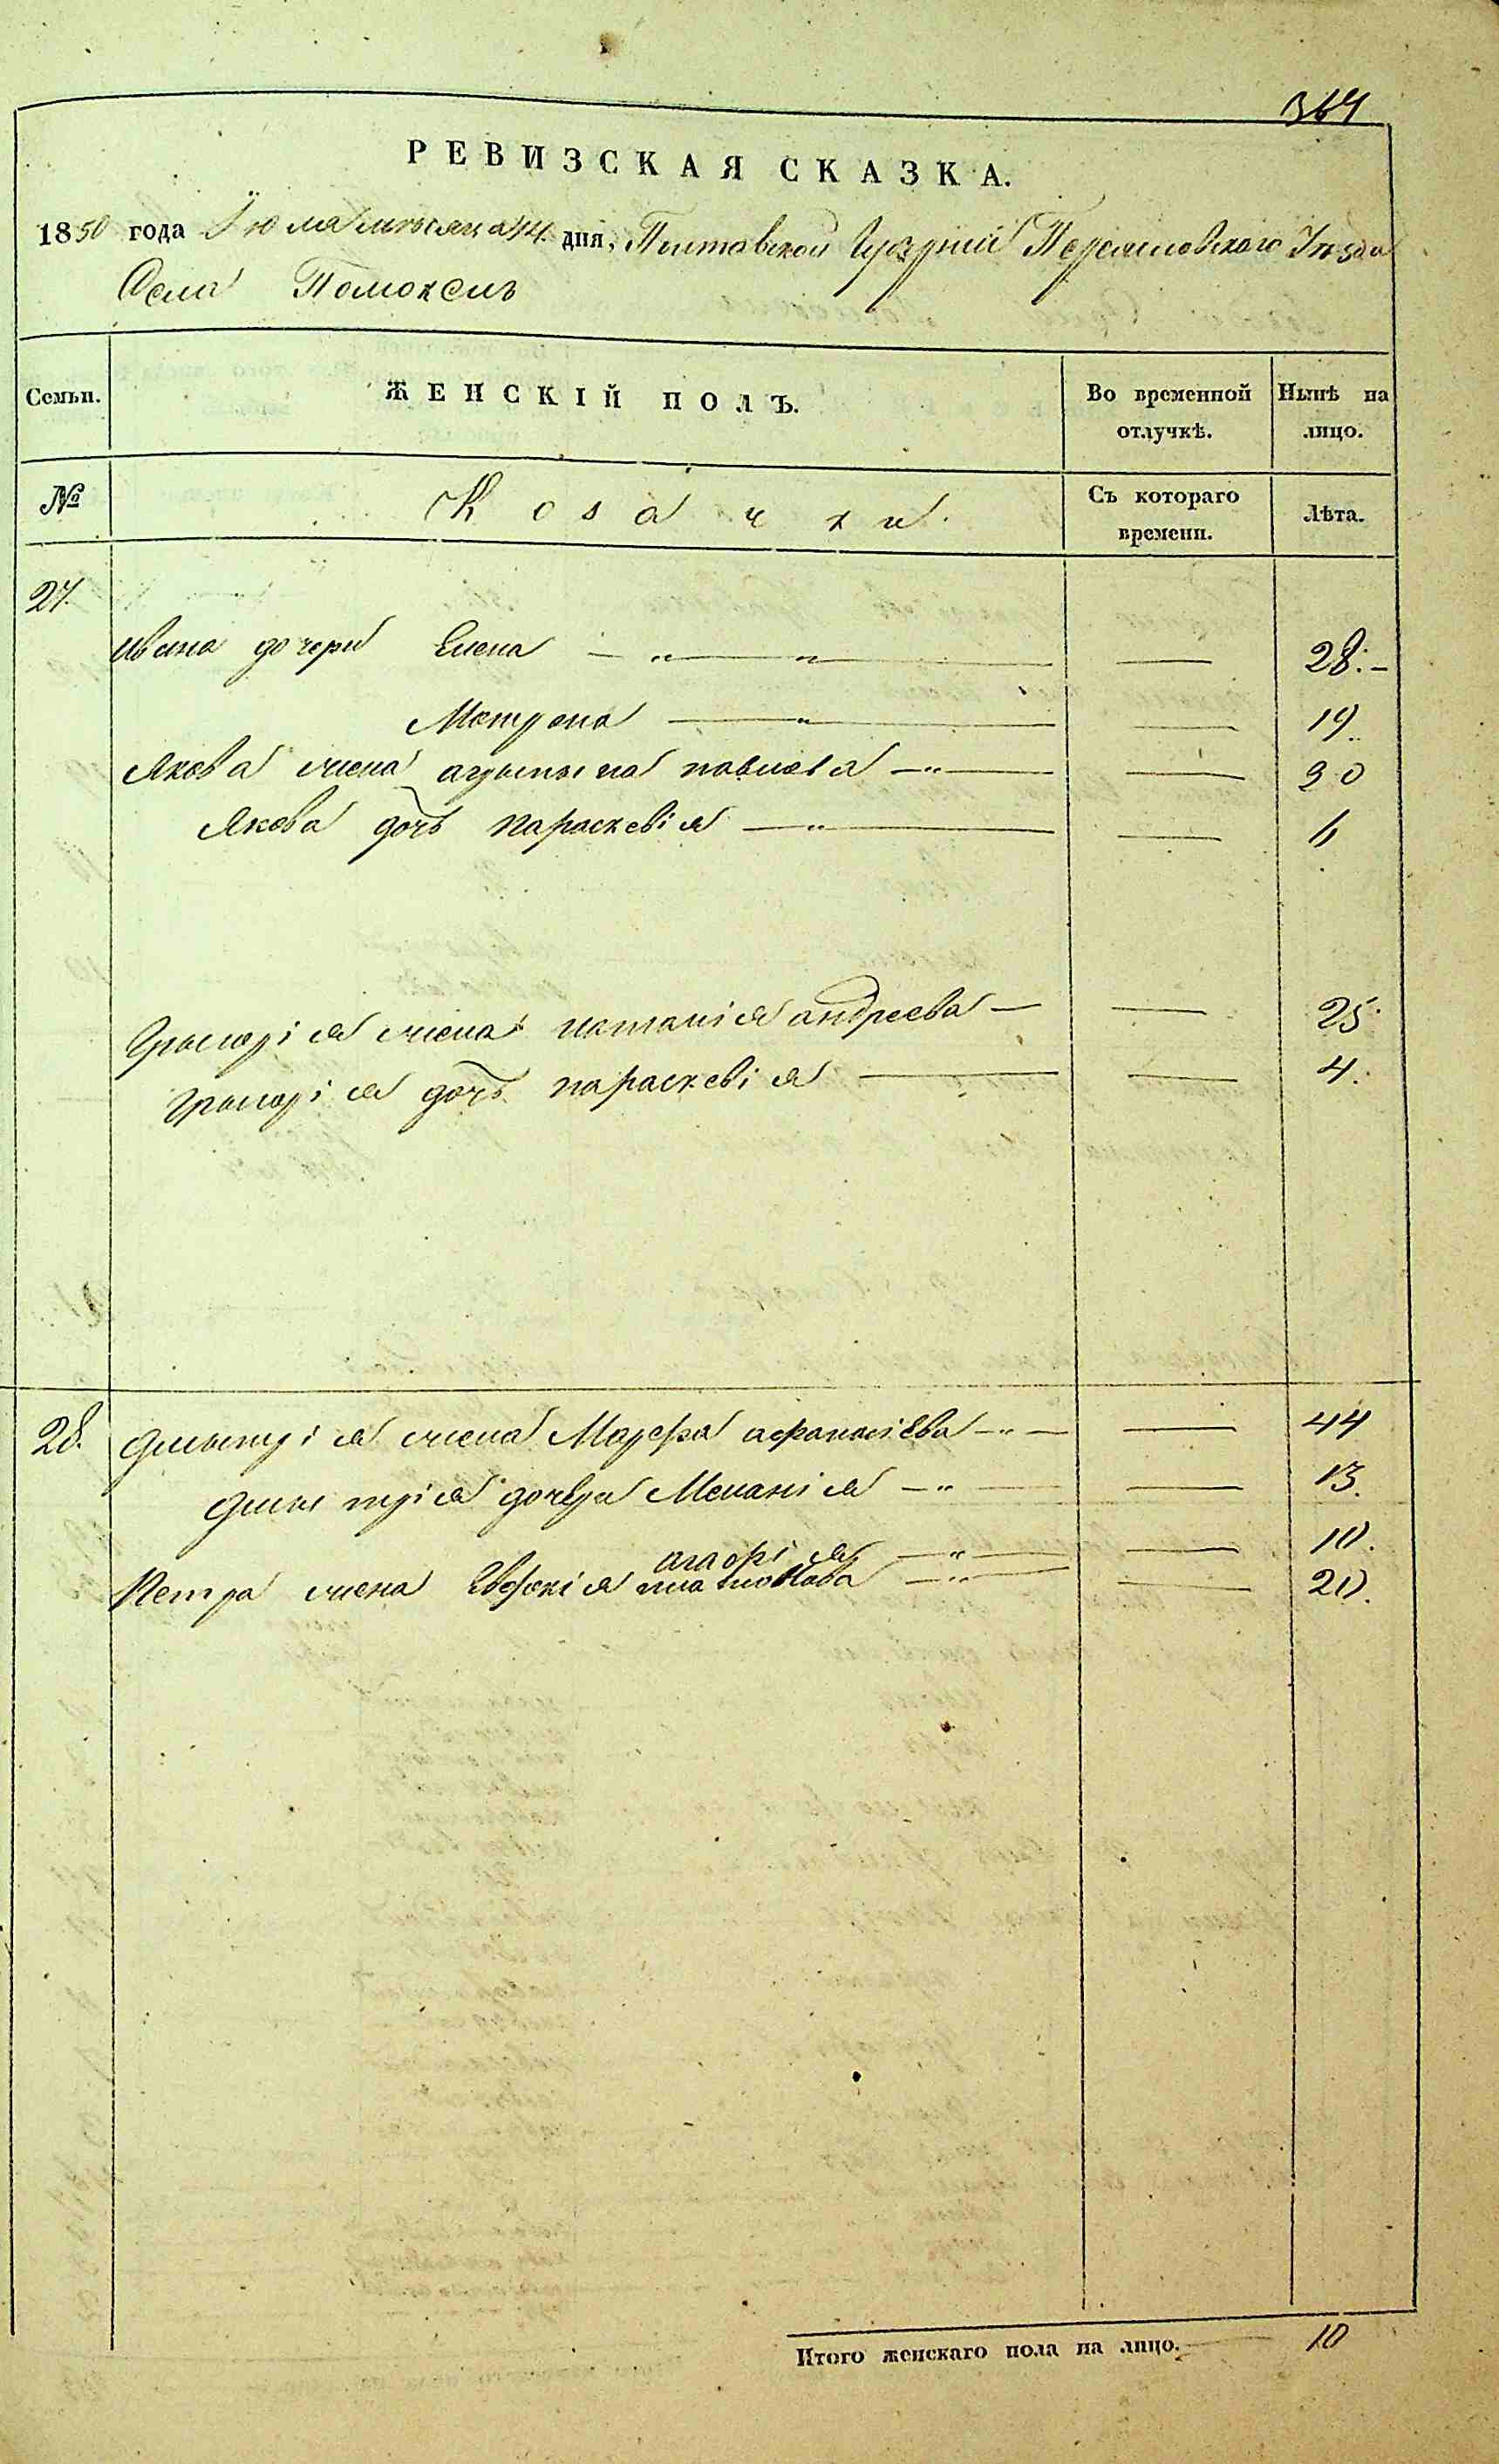 364
РЕВИЗСКАЯ СКАЗКА.
1850 года Іюля мѣсяца 14 дня, Полтавской Губерніи Переяславского Уѣзда
Села Помоклъ
Семьи. ЖЕНСКІЙ ПОЛЪ. Во временной отлучкѣ. Нынѣ на лицо.
№ Козачки. Съ котораго времени. Лѣта.
27.
Ивана дочери Елена — „ — „ — — 28.
Матрена — „ — — 19.
Якова жена агрыпына павлова — „ — — 30
Якова дочь параскевія — „ — — 6
Григорія жена наталія андреева — — 25
Григорія дочь параскевія — — 4.
28. Дмытрія жена Марфа афанасіева — „ — — 44
Дмытрія дочера Меланія — „ — — 13.
агафія — „ — — 10.
Петра жена Евфкія — „ — — 20.
Итого женскаго пола на лицо. 10